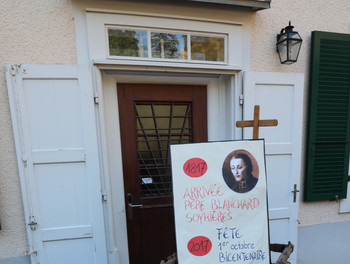 1817
ARRIVÉE
PÈRE BLANCHARD
SOYHIÈRES
2017
FÊTE
1er octobre
BICENTENAIRE